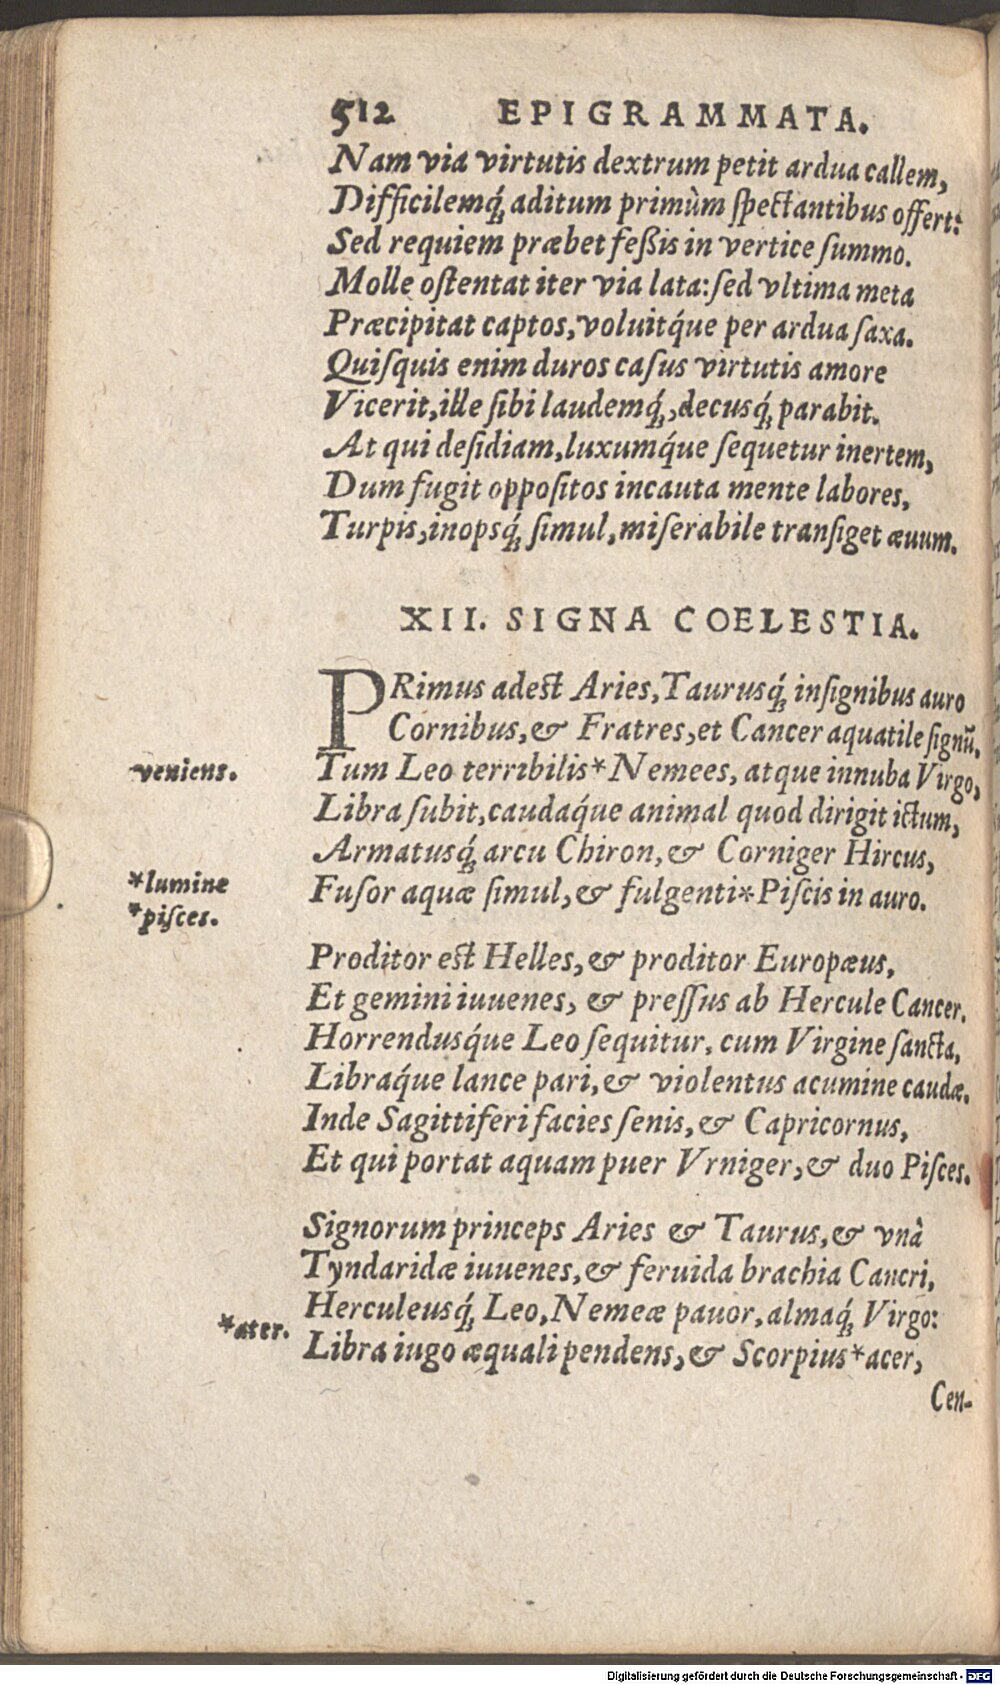 512 EPIGRAMMATA.
Nam via virtutis dextrum petit ardua callem,
Difficilemq́; aditum primùm ſpectantibus offert:
Sed requiem præbet feßis in vertice ſummo.
Molle oſtentat iter via lata: ſed vltima meta
Præcipitat captos, voluitq́ue per ardua ſaxa.
Quiſquis enim duros caſus virtutis amore
Vicerit, ille ſibi laudemq́;, decusq́; parabit.
At qui deſidiam, luxumq́ue ſequetur inertem,
Dum fugit oppoſitos incauta mente labores,
Turpis, inopsq́; ſimul, miſerabile tranſiget æuum.
XII. SIGNA COELESTIA.
PRimus adeſt Aries, Taurusq́; inſignibus auro
Cornibus, & Fratres, et Cancer aquatile ſignū,
veniens. Tum Leo terribilis*Nemees, atque innuba Virgo,
Libra ſubit, caudaq́ue animal quod dirigit ictum,
Armatusq́; arcu Chiron, & Corniger Hircus,
*lumine Fuſor aquæ ſimul, & fulgenti*Piſcis in auro.
*piſces.
Proditor eſt Helles, & proditor Europæus,
Et gemini iuuenes, & preſſus ab Hercule Cancer.
Horrendusq́ue Leo ſequitur, cum Virgine ſancta,
Libraq́ue lance pari, & violentus acumine caudæ.
Inde Sagittiferi facies ſenis, & Capricornus,
Et qui portat aquam puer Vrniger, & duo Piſces.
Signorum princeps Aries & Taurus, & vnà
Tyndaridæ iuuenes, & feruida brachia Cancri,
Herculeusq́; Leo, Nemeæ pauor, almaq́; Virgo:
*ater. Libra iugo æquali pendens, & Scorpius*acer,
Cen-
Digitalisierung gefördert durch die Deutsche Forschungsgemeinschaft - DFG